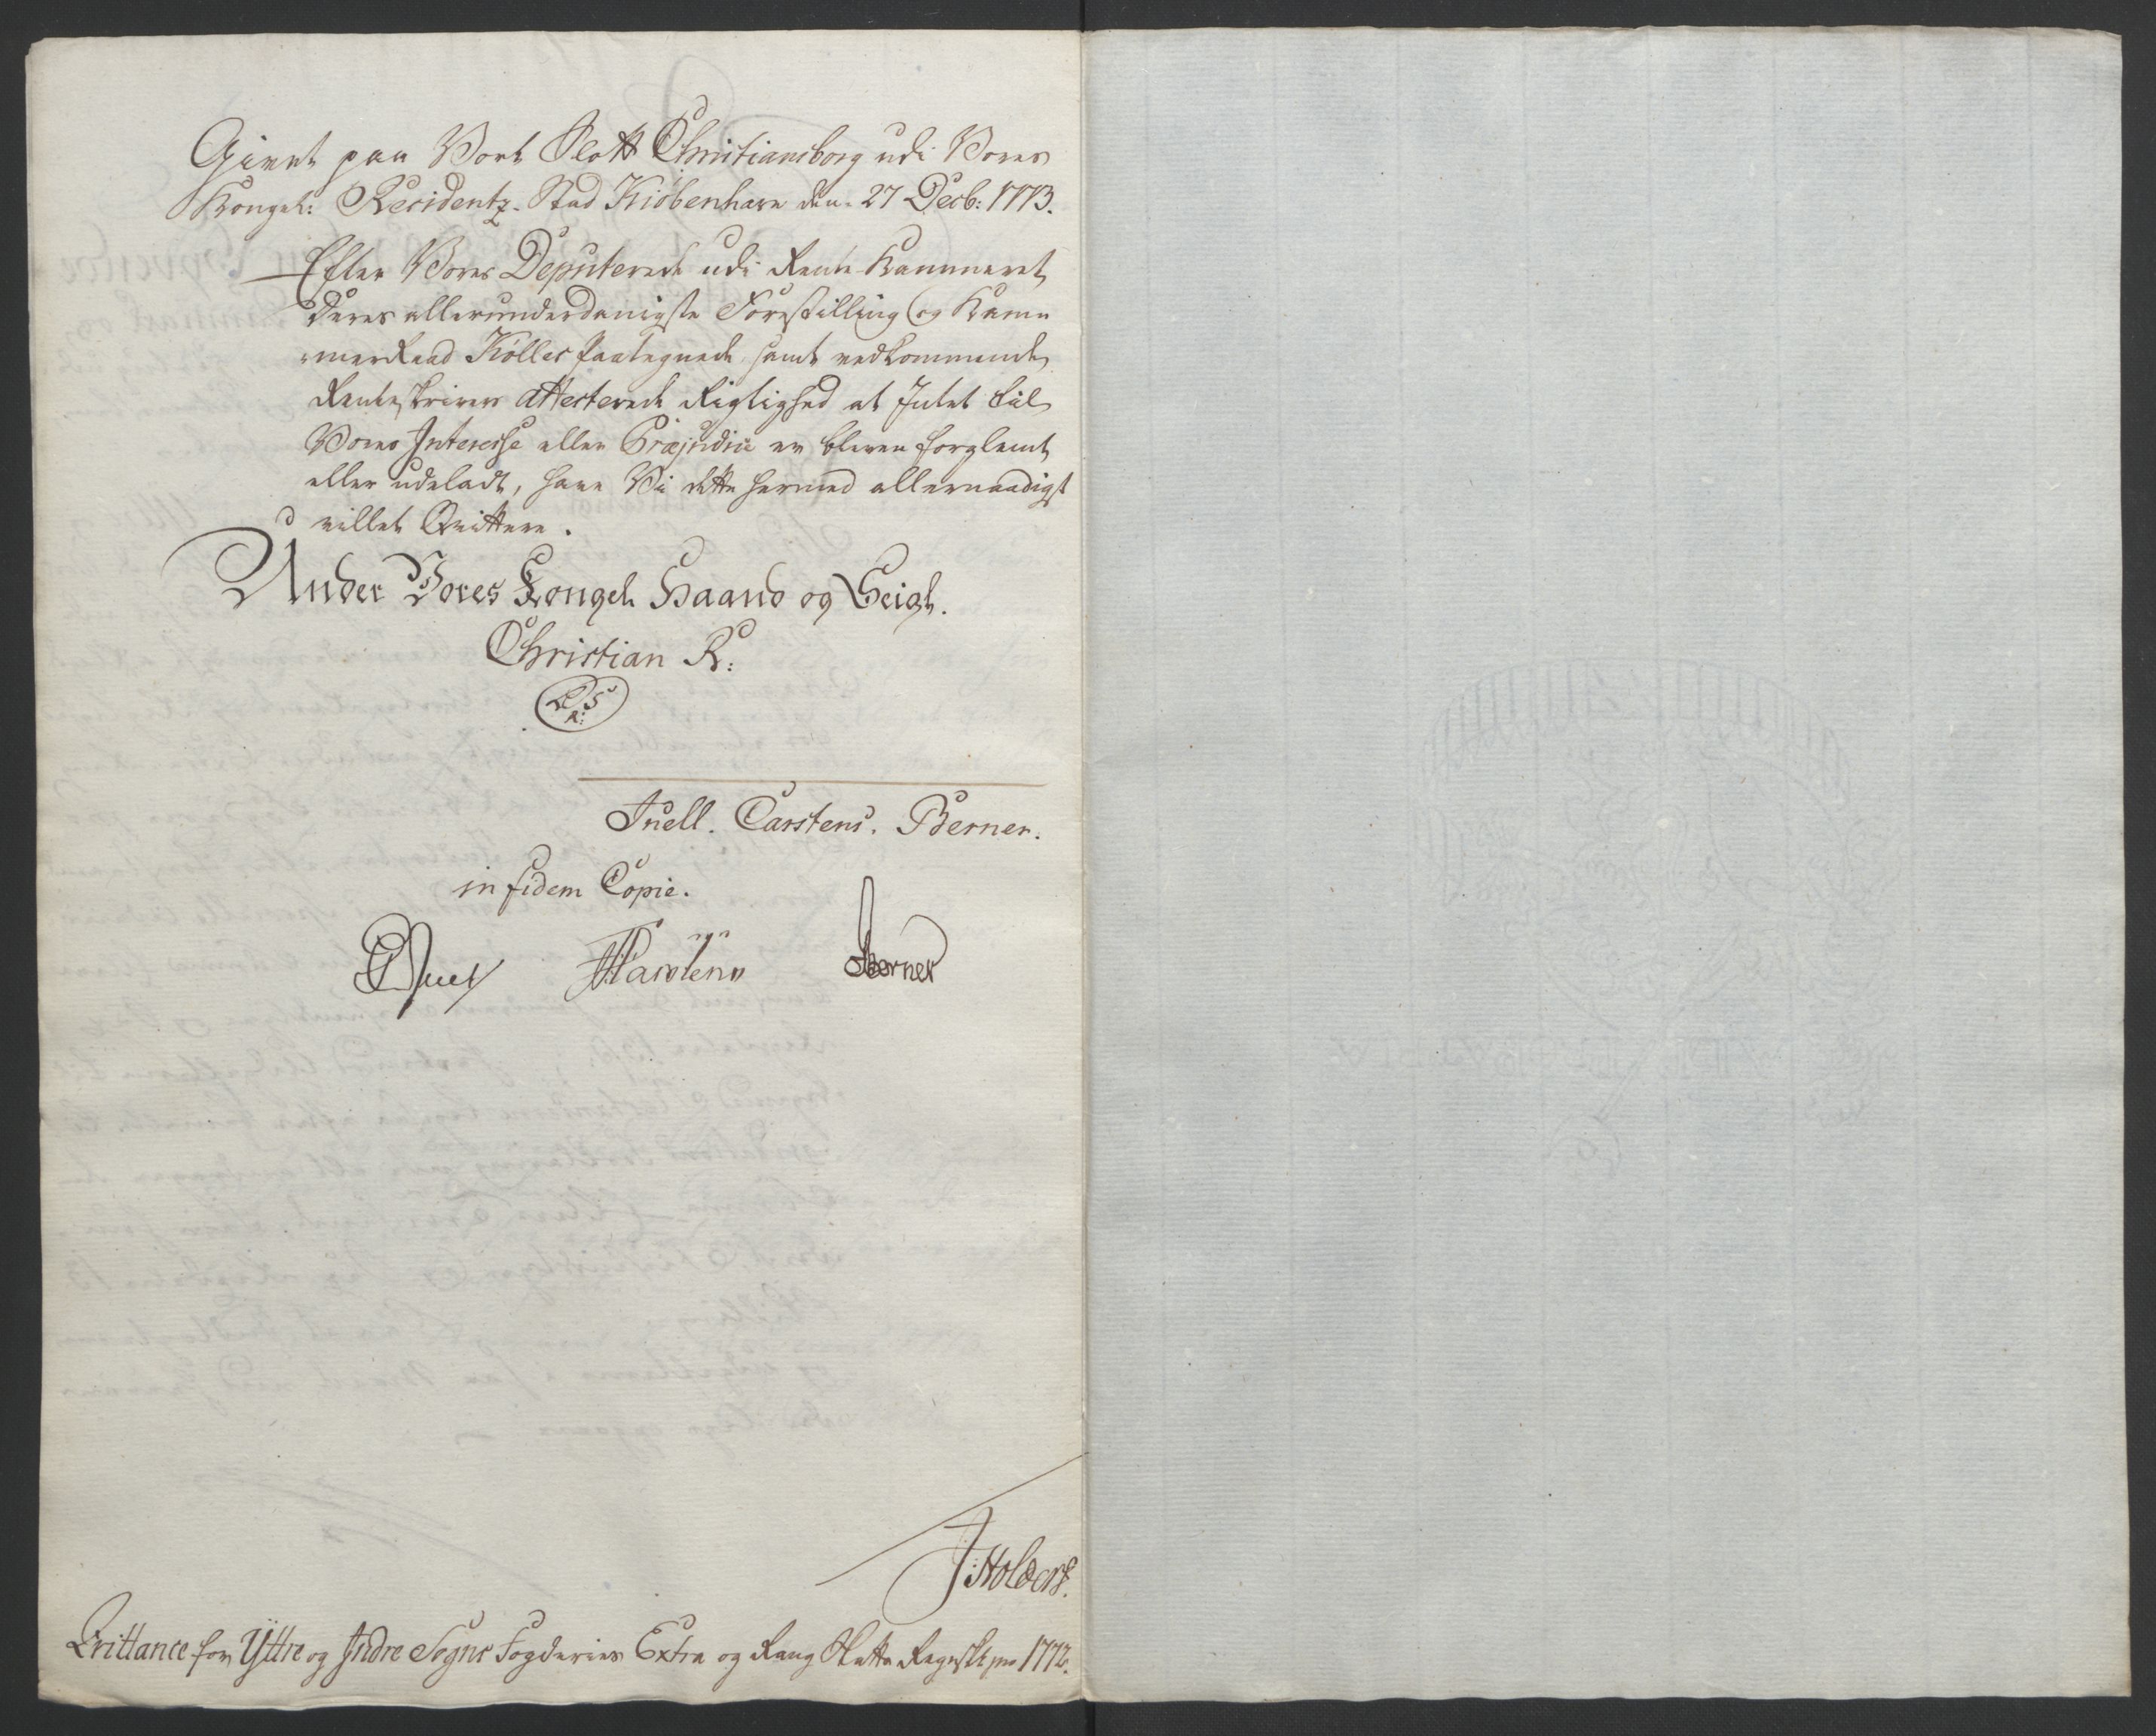 Givet paa Vort Slott Christiansborg udi Vores
Kongel: Residentz-Stad Kiøbenhavn den 27 Decb: 1773.
Efter Vores Deputerede udi Rente-Kammeret
Deres allerunderdanigste Forestilling og Kam-
merRaad Kølles paategnede, samt vedkommende
Renteskrivers attesterede Rigtighed at Intet til
Vores Interesse eller Præjudice er bleven forglemt
eller udeladt, have Vi dette hermed allernaadigst
villet Qvittere.
Under Vores Kongel Haand og Seigl.
Christian R:
L S
R:
Juell. Carstens. Berner.
in fidem Copie.
Juel Carstens Berner
J: Holbers.
Qvittance for Yttre og Indre Sogns Fogderies Extra og Rang Skatte Regnsk: pro 1772.